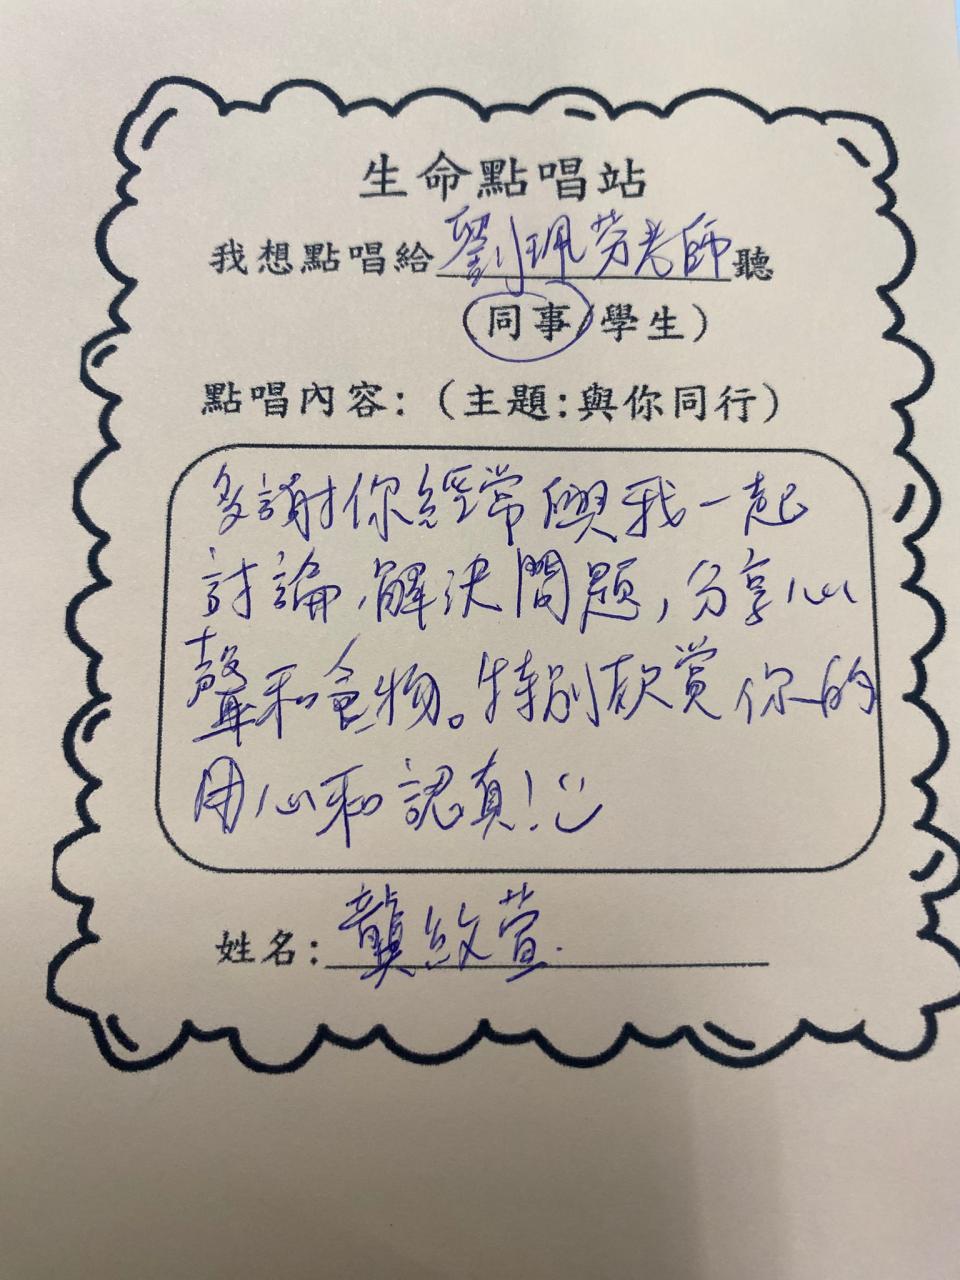 生命點唱站
我想點唱給劉珮芬老師聽
(同事/學生)
點唱內容:(主題:與你同行)
多謝你經常與我一起
討論,解決問題,分享心
聲和食物。特別欣賞你的
用心和認真!
姓名:龔紋萱